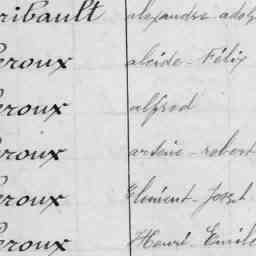 ribault alexandre adol
eroux alcide - Félix
eroux alfred
eroux arsène - robert
eroux Clément - Joseph
eroux Henri - Emile